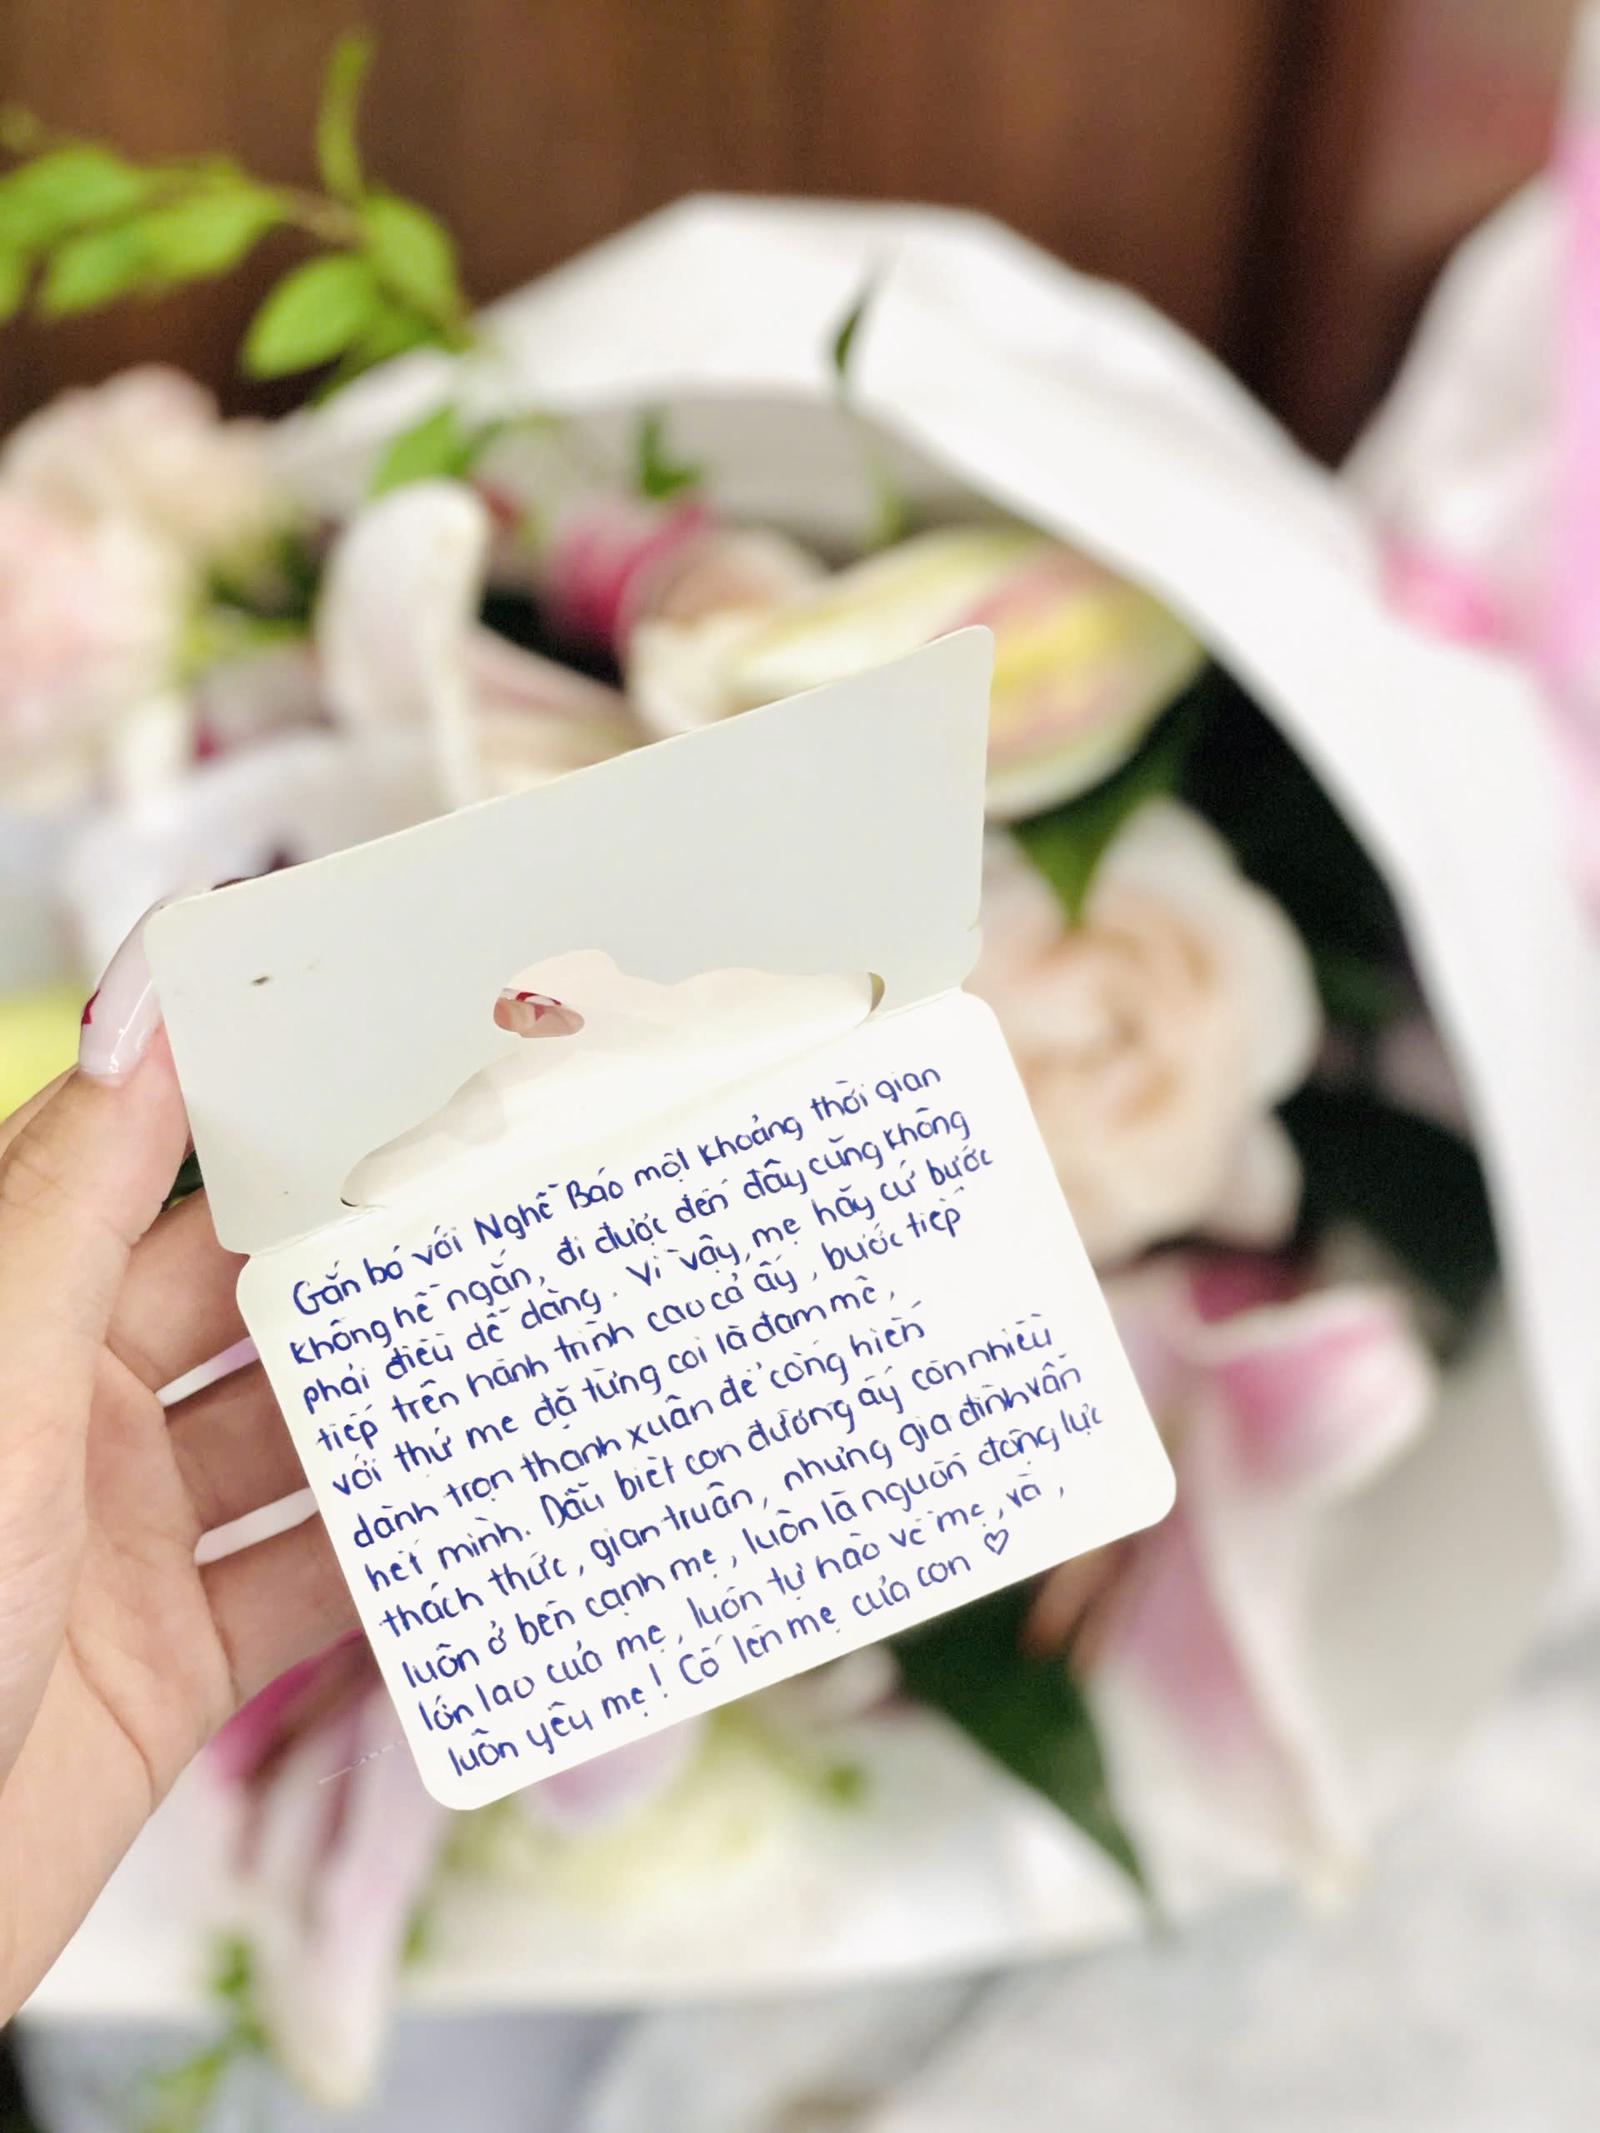 Gắn bó với Nghề Báo một khoảng thời gian
không hề ngắn, đi được đến đây cũng không
phải điều dễ dàng. Vì vậy, mẹ hãy cứ bước
tiếp trên hành trình cao cả ấy, bước tiếp
với thứ mẹ đã từng coi là đam mê,
dành trọn thanh xuân để cống hiến
hết mình. Dẫu biết con đường ấy còn nhiều
thách thức, gian truân, nhưng gia đình vẫn
luôn ở bên cạnh mẹ, luôn là nguồn động lực
lớn lao của mẹ, luôn tự hào về mẹ, và,
luôn yêu mẹ! Cố lên mẹ của con ♡